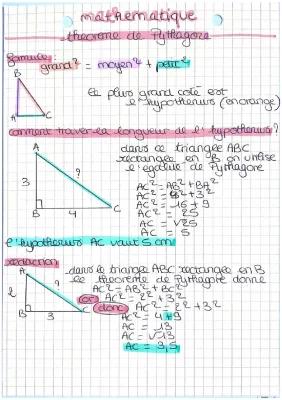 mathematique
theoreme de Pythagore
formule:
grand² = moyen² + petit²
B
A
C
Le plus grand coté est
l'hypothenus (en orange)
comment trouver la longueur de l'hypothenus?
A
3
?
B
4
C
dans ce triangle ABC
rectangle en B on utilise
l'égalité de Pythagore
AC² = AB² + BA²
AC² = 4² + 3²
AC² = 16 + 9
AC² = 25
AC = √25
AC = 5
l'hypothenus AC vaut 5 cm
redaction
A
2
?
B
3
C
dans le triangle ABC rectangle en B
le theoreme de Pythagore donne
AC² = AB² + BC²
or AC² = 2² + 3²
donc AC² = 2² + 3²
AC² = 4 + 9
AC = 13
AC = √13
AC = 3,5